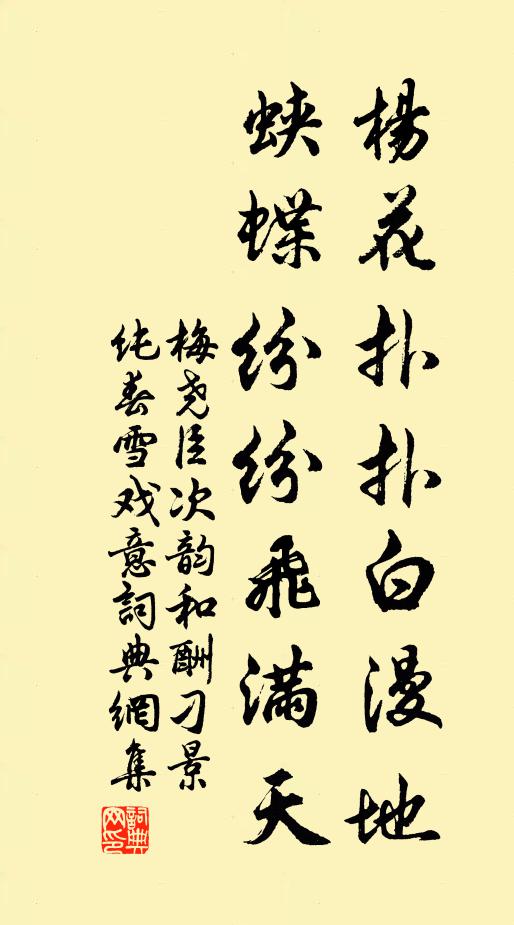 楊花扑扑白漫地
蛺蝶纷纷飛满天
梅尧臣次韵和酬刁景
纯春雪戏意詞典網集
詞典
网印